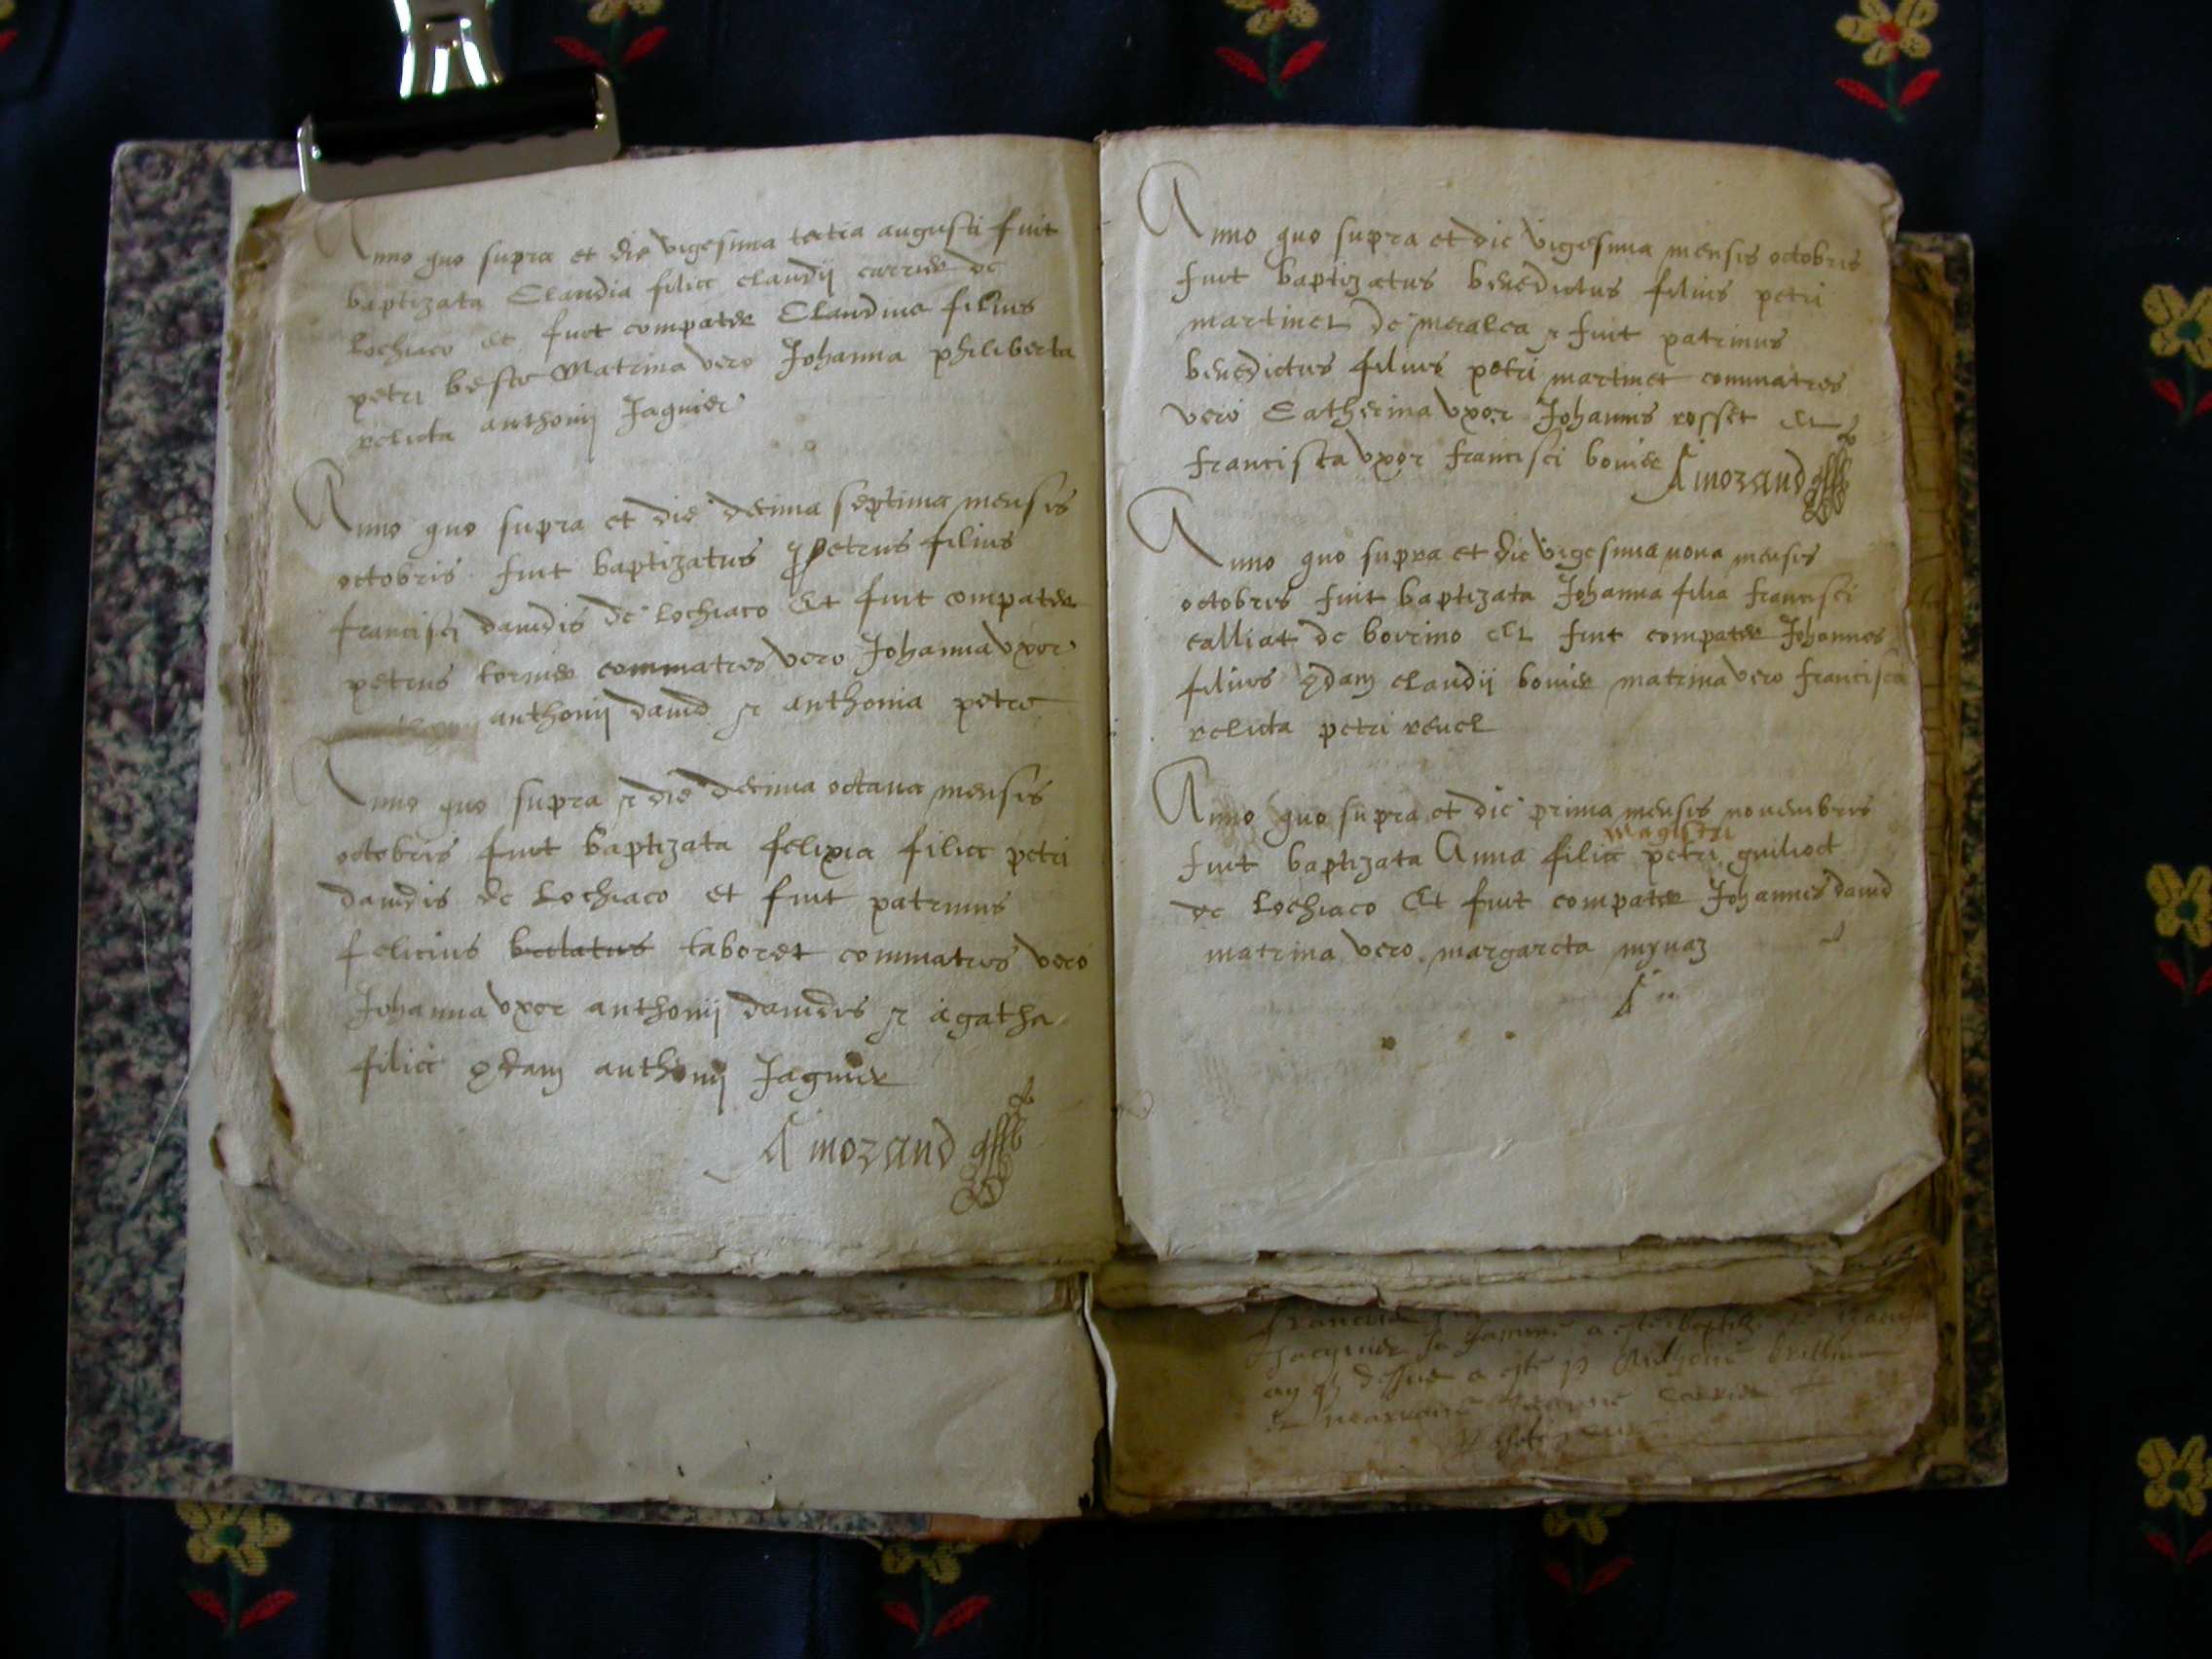 Anno quo supra et die vigesima tertia augusti fuit
baptizata Claudia filia claudij carrier de
Lochiaco et fuit compater Claudius filius
petri beste Matrina vero Johanna philiberta
relicta anthonij Jaquier
Anno quo supra et die decima septima mensis
octobris fuit baptizatus petrus filius
francisci davidis de Lochiaco Et fuit compater
petrus tornier commatres vero Johanna vxor
anthonij david et anthonia petre
Anno quo supra et die decima octava mensis
octobris fuit baptizata felixia filia petri
davidis de Lochiaco et fuit patrinus
felicius taboret commatres vero
Johanna vxor anthonij davidis et agatha
filia qdam anthonij Jaquier
A morand
Anno quo supra et die vigesima mensis octobris
fuit baptizatus benedictus filius petri
martinet de meralea et fuit patrinus
benedictus filius petri martinet commatres
vero Catherina vxor Johannis rosset et
francisca vxor francisci bovier
A morand
Anno quo supra et die vigesima nona mensis
octobris fuit baptizata Johanna filia francisci
calliat de bovrino et fuit compater Johannes
filius qdam claudij bovier matrina vero francisca
relicta petri revel
Anno quo supra et die prima mensis novembris
magistri
fuit baptizata Anna filia petri guiliod
de Lochiaco Et fuit compater Johannes david
matrina vero margareta mynaz
A